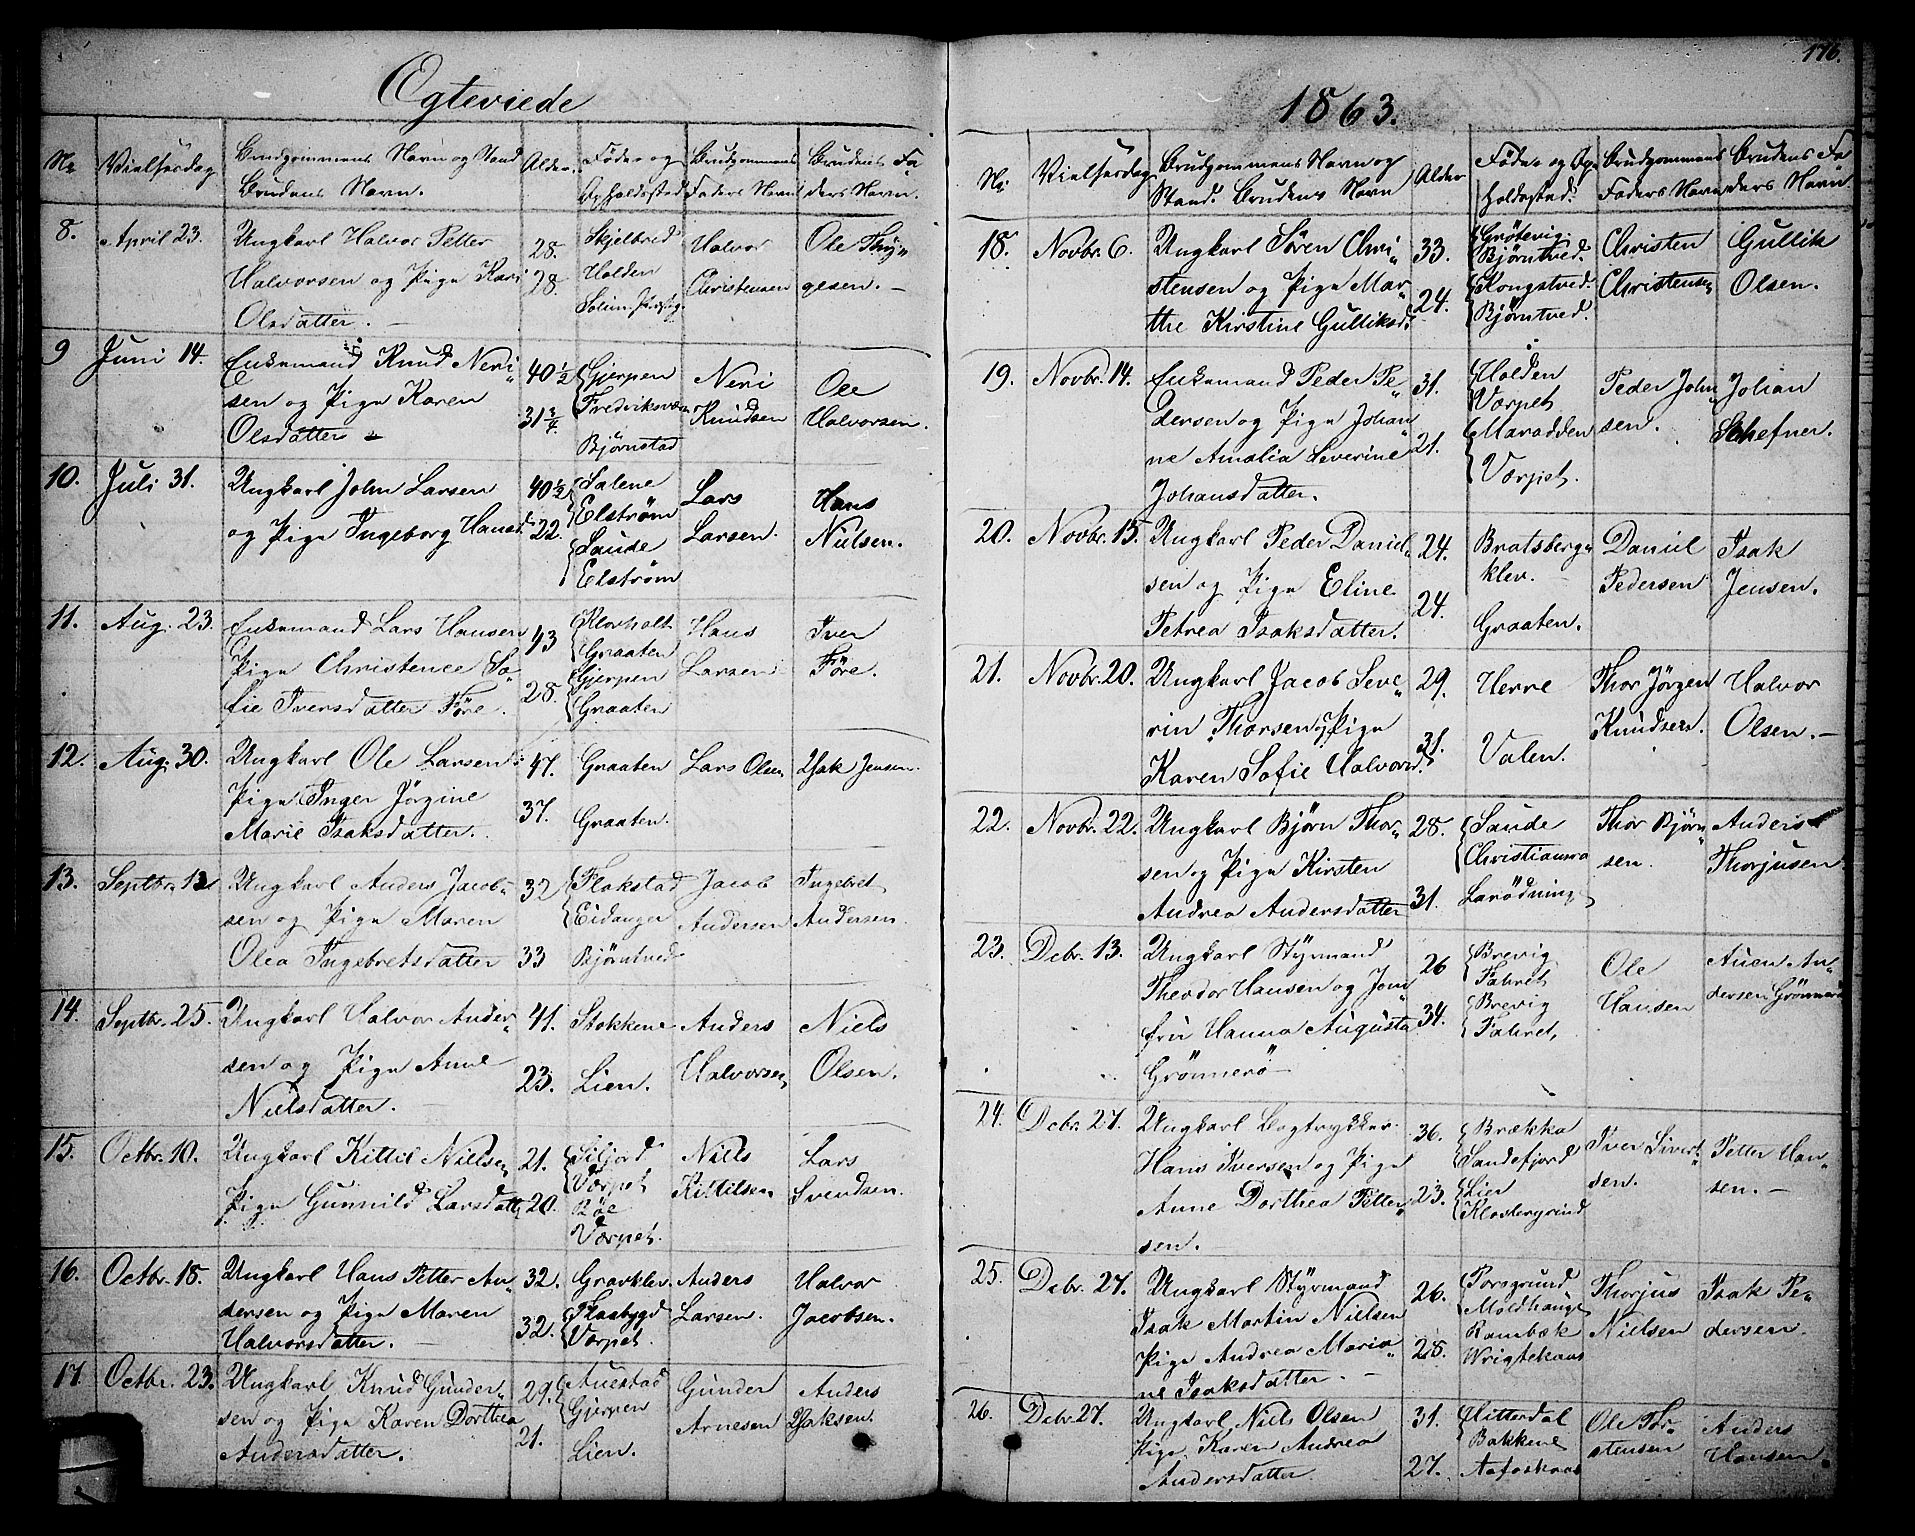 Ægteviede
Nr
Vielsesdag
Brudgommens Navn og Stand
Brudens Navn.
Alder.
Føde- og
Opholdssted
Brudgommens
Faders Navn
Brudens Fa-
ders Navn.
8.
April 23.
Ungkarl Halvor Petter
Halvorsen og Pige Kari
Olsdatter. —
28.
28.
Skjelbred
Holden
Solum
Halvor
Christensen
Ole Thÿ„
gesen. —
9
Juni 14.
Enkemand Knud Neri„
sen og Pige Karen
Olsdatter —
40 1/2
31 3/4
Gjerpen
Fredriksværn
Bjørnstad
Neri
Knudsen
Ole
Halvorsen.
10.
Juli 31.
Ungkarl John Larsen
og Pige Ingeborg Hansd.
40 1/2
22.
Salene
Elstrøm
Saude
Elstrøm
Lars
Larsen.
Hans
Nielsen.
11.
Aug. 23.
Enkemand Lars Hansen
Pige Christence So„
fie Iversdatter Føre.
43
28.
Klovholt
Graaten
Gjerpen
Graaten
Hans
Larsen
Iver
Føre.
12.
Aug. 30.
Ungkarl Ole Larsen
Pige Inger Jørgine
Marie Isaksdatter.
47.
37.
Graaten
Graaten.
Lars Olsen
Isak Jensen.
13.
Septbr. 12
Ungkarl Anders Jacob„
sen og Pige Maren
Olea Ingebretsdatter
32
33
Flakstad
Eidanger
Bjørntved
Jacob
Andersen
Ingebret
Andersen.
14.
Septbr. 25.
Ungkarl Halvor Ander„
sen og Pige Anne
Nielsdatter. —
41.
23.
Stokkene
Lien.
Anders
Halvorsen
Niels
Olsen.
15.
Octbr. 10.
Ungkarl Kittil Nielsen
Pige Gunnild Larsdatt.
21.
20.
Siljord
Værpet
Bøe
Værpet.
Niels
Kittilsen
Lars
Svendsen.
16.
Octbr. 18.
Ungkarl Hans Petter An„
dersen og Pige Maren
Halvorsdatter. —
32.
32.
Gravklev
Flaabygd
Værpet.
Anders
Larsen.
Halvor
Jacobsen.
17
Octbr. 23.
Ungkarl Knud Gunder„
sen og Pige Karen Dorthea
Andersdatter.
29.
21.
Auestad
Gjerpen
Lien.
Gunder
Arnesen
Anders
Isaksen.
176.
1863.
Nr.
Vielsesdag
Brudgommens Navn og
Stand. Brudens Navn
Alder
Føde- og Op-
holdssted.
Brudgommens
Faders Navn
Brudens Fa-
ders Navn.
18.
Novbr. 6.
Ungkarl Søren Chri„
stensen og Pige Mar„
the Kirstine Gulliksd.
33.
24.
Grøtevig
Bjørntved.
Kongstved.
Bjørntved.
Christen
Christensen
Gullik
Olsen.
19.
Novbr. 14.
Enkemand Peder Pe„
dersen og Pige Johan„
ne Amalia Severine
Johansdatter.
31.
21.
Holden
Værpet
Maradden
Værpet.
Peder John„
sen.
Johan
Schefner.
20.
Novbr. 15.
Ungkarl Peder Daniel„
sen og Pige Eline
Petrea Isaksdatter.
24.
24.
Bratsberg„
klev. —
Graaten.
Daniel
Pedersen
Isak
Jensen.
21.
Novbr. 20.
Ungkarl Jacob Seve„
rin Thorsen og Pige
Karen Sofie Halvorsd.
29.
31.
Herre
Valen.
Thor Jørgen
Knudsen.
Halvor
Olsen. —
22.
Novbr. 22.
Ungkarl Bjørn Thor„
sen og Pige Kirsten
Andrea Andersdatter
28.
31.
Saude
Christiania
Larødning
Thor Bjørn„
sen.
Anders
Thorjusen
23.
Debr. 13.
Ungkarl Stÿrmand
Theodor Hansen og Jom„
fru Hanna Augusta
Grønnerø
26
34.
Brevig
Fahret
Brevig
Fahret,
Ole
Hansen
Auen An„
dersen Grønnerø
24.
Debr. 27.
Ungkarl Bogtrykker
Hans Iversen og Pige
Anne Dorthea Petter„
sen.
36.
23.
Brækka
Sandefjord
Lien
Klostergrind
Iver Sivert„
sen.
Petter Han„
sen. —
25.
Debr. 27.
Ungkarl Stÿrmand
Isak Martin Nielsen
Pige Andrea Maria„
ne Isaksdatter. —
26.
28.
Porsgrund
Moldhauge
Rambæk
Wrigtekaas
Thorjus
Nielsen
Isak Pe„
dersen.
26.
Debr. 27.
Ungkarl Niels Olsen
Pige Karen Andrea
Andersdatter
31.
27.
Hitterdal
Bakkene
Ole Tor„
stensen
Anders
Hansen.